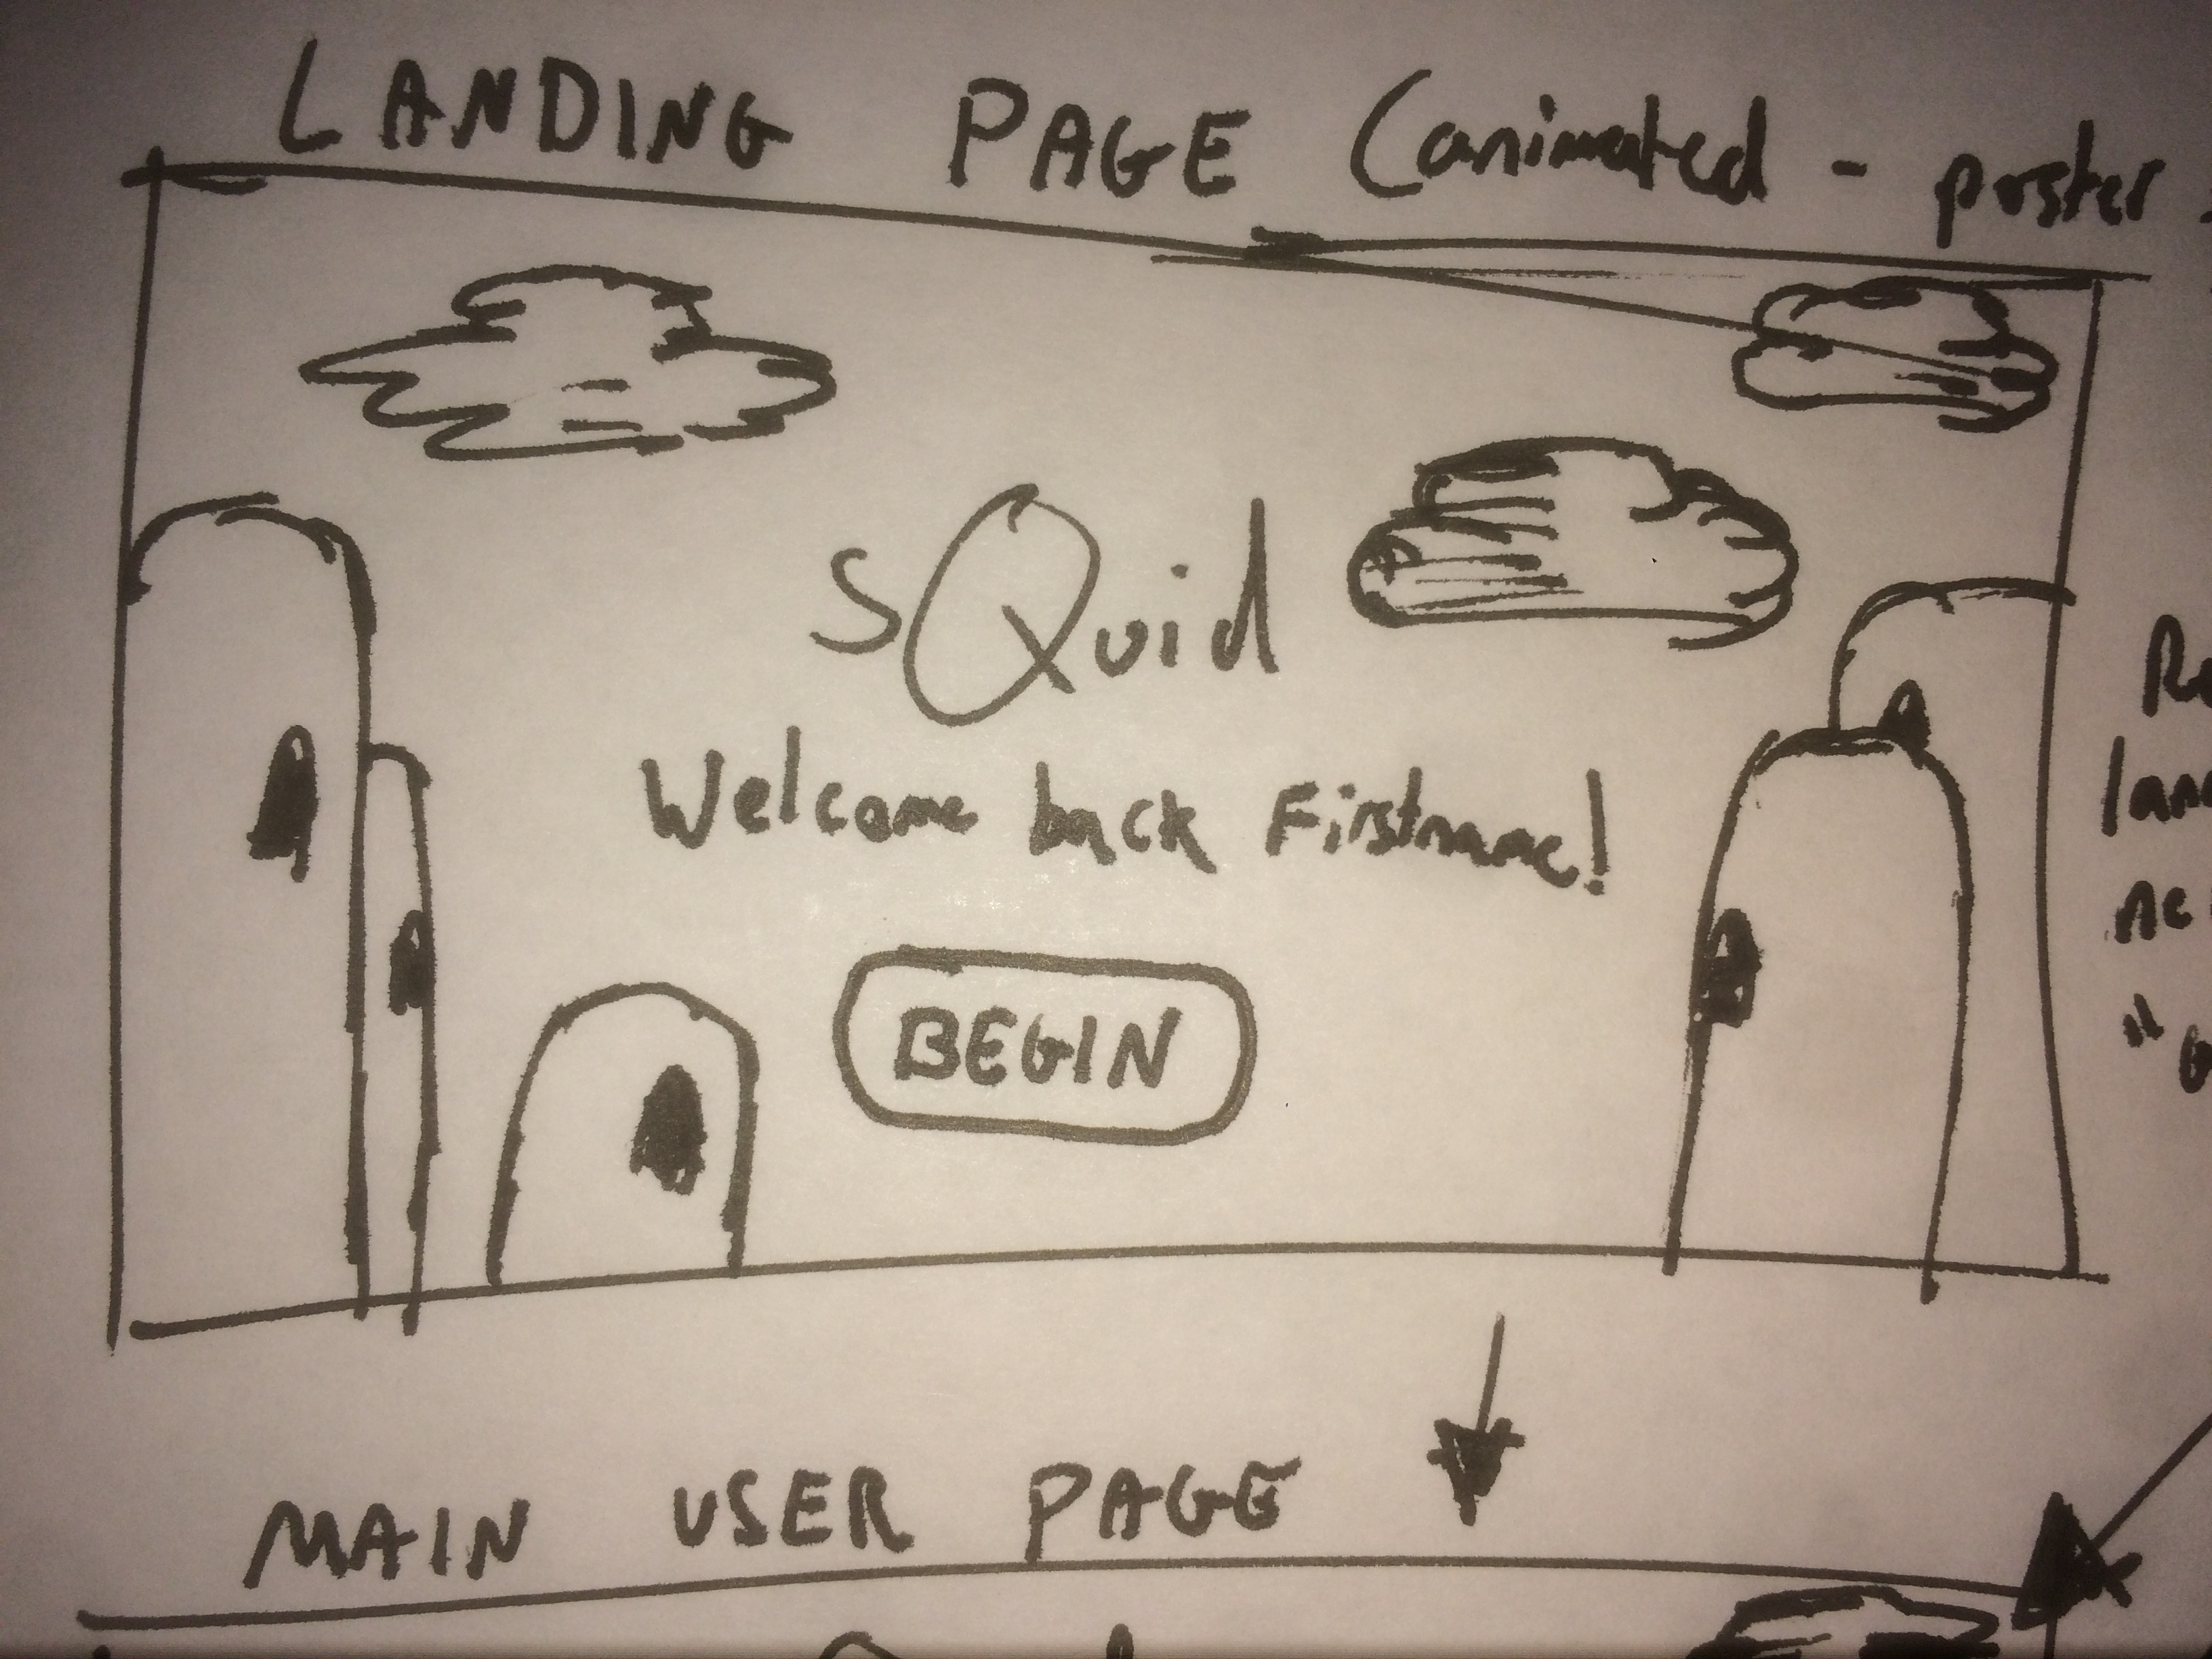 LANDING PAGE (animated - poster
sQuid
Welcome back Firstname!
BEGIN
MAIN USER PAGE